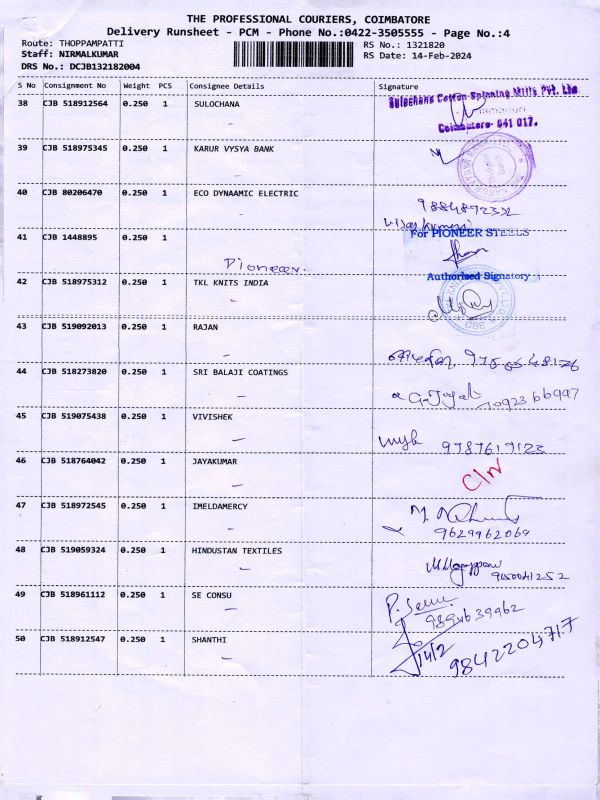 THE PROFESSIONAL COURIERS, COIMBATORE
Delivery Runsheet - PCM - Phone No.:0422-3505555 - Page No.:4
Route: THOPPAMPATTI
Staff: NIRMALKUMAR
DRS No.: DCJB132182004
RS No.: 1321820
RS Date: 14-Feb-2024
S No Consignment No Weight PCS Consignee Details Signature
38 CJB 518912564 0.250 1 SULOCHANA
Sulochana Cotton Spinning Mills Pvt. Ltd
Coimbatore- 641 017.
39 CJB 518975345 0.250 1 KARUR VYSYA BANK
40 CJB 80206470 0.250 1 ECO DYNAAMIC ELECTRIC
41 CJB 1448895 0.250 1
Pioneer.
For PIONEER STEELS
Authorised Signatory
42 CJB 518975312 0.250 1 TKL KNITS INDIA
CBE
43 CJB 519092013 0.250 1 RAJAN
44 CJB 518273820 0.250 1 SRI BALAJI COATINGS
45 CJB 519075438 0.250 1 VIVISHEK
9787617123
46 CJB 518764042 0.250 1 JAYAKUMAR
47 CJB 518972545 0.250 1 IMELDAMERCY
9629962069
48 CJB 519059324 0.250 1 HINDUSTAN TEXTILES
49 CJB 518961112 0.250 1 SE CONSU
50 CJB 518912547 0.250 1 SHANTHI
14/2
9842204717